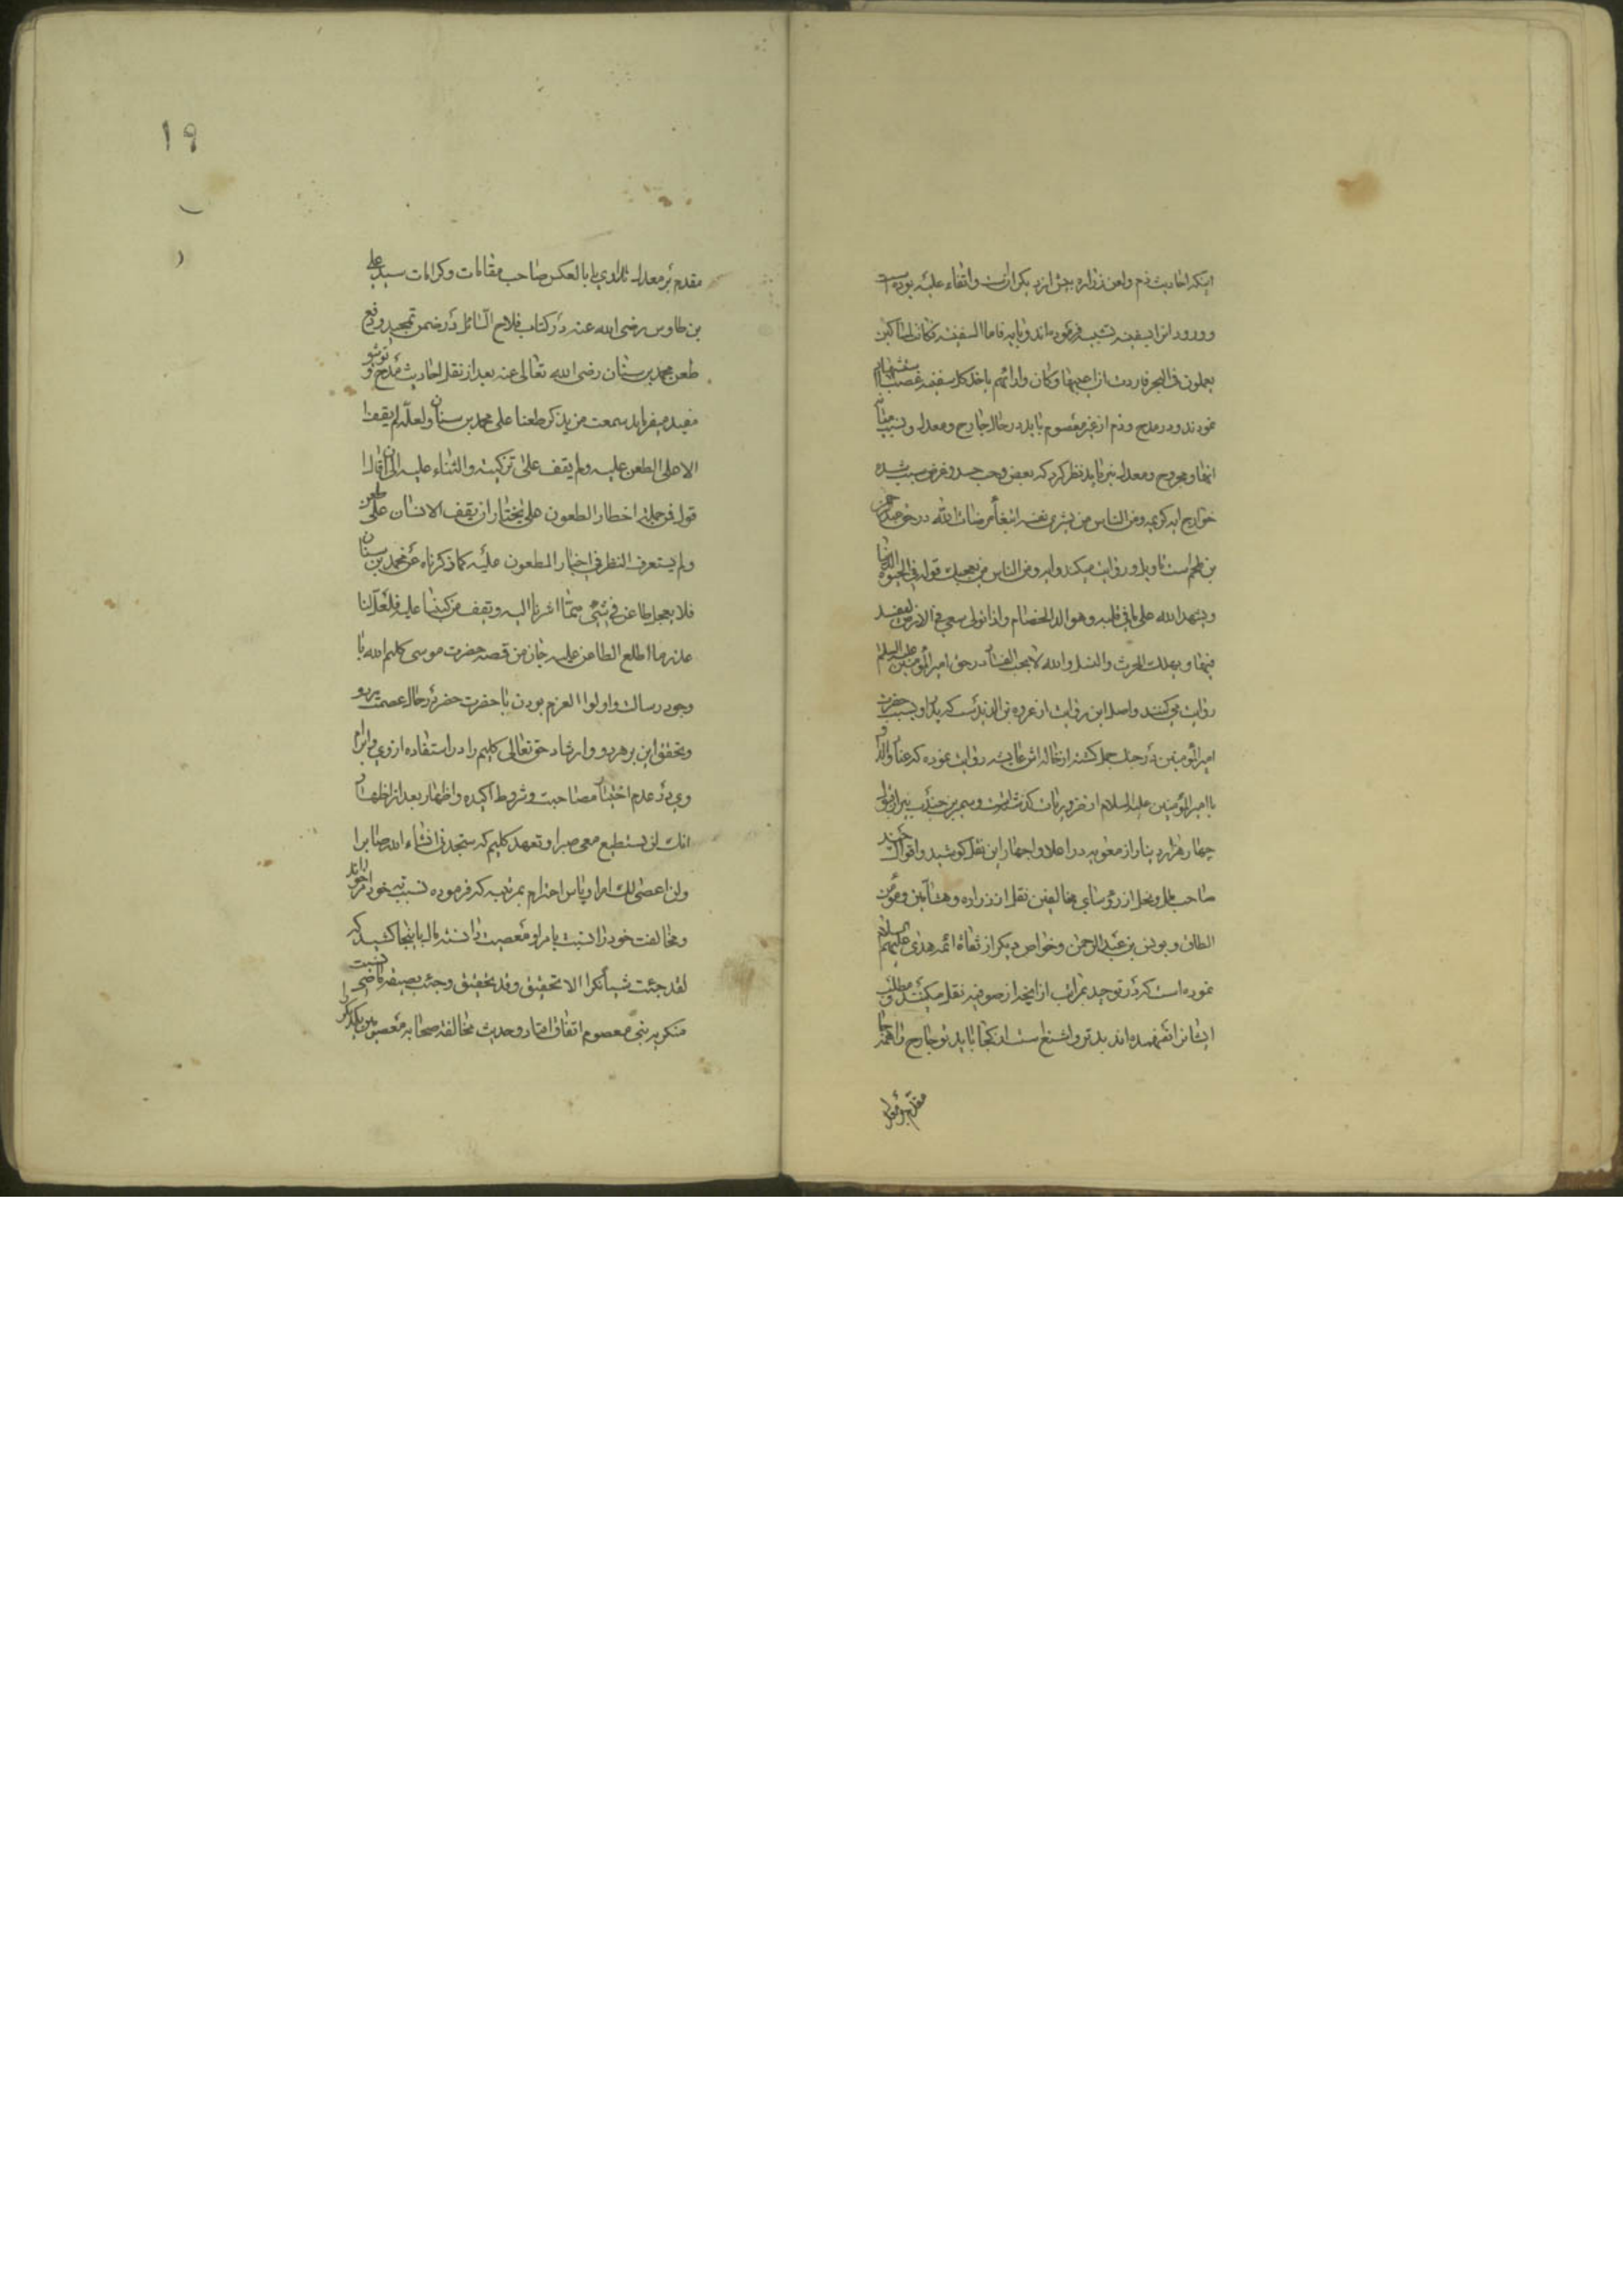 اینکه احادیث ذم و لعن زراره بیش از دیگران است و اتقاء علیه بوده
و ورود انرا بسفینه تشبیه فرموده‌اند و بایه فاما السفینه فکانت لمساکین
یعملون فی البحر فاردت ان اعیبها و کان وراءهم یاخذ کل سفینه غصبا
نمودند و در مدح و ذم از غیر معصوم باید در حال جارح و معدل و نسبت میان
انها و مجروح و معدل نیز باید نظر کرد که بعض و حب حسد و غرض سبب شده
خوارج ایه کریمه و من الناس من یشری نفسه ابتغأ مرضات الله در حق عبدالرحمن
بن ملجم است تاویل و روایت میکند و ایه و من الناس من یعجبک قوله فی الحیوة الدنیا
و یشهد الله علی ما فی قلبه و هو الد الخصام و اذا تولی سعی فی الارض لیفسد
فیها و یهلک الحرث و النسل و الله لا یحب الفساد در حق امیر المؤمنین علیه السلام
روایت می‌کنند و اصل این روایت از عروه بن الزبیر است که پدر او بسبب حضرت
امیر المؤمنین در جنگ جمل کشته از خاله اش عایشه روایت نموده که عناد
با امیر المؤمنین علیه السلام از ضروریات و سمره بن جندب نیز
چهار هزار دینار از معویه در اعلا و اجهار این نقل کوشید و اقوال چند
صاحب ملل و نحل از رؤسای مخالفین نقل از زراره و هشامین و مؤمن
الطاق و یونس بن عبد الرحمن و خواص دیگر از ثقاة ائمه هدی علیهم السلام
نموده است که در توحید بمراتب از انچه از صوفیه نقل میکنند و مطلب
ایشانرا نفهمیده‌اند بدتر و اشنع است از کجا باید تو جارح را همه جا
مقدم بر معدل
۱۹
مقدم بر معدل یا بالعکس صاحب مقامات و کرامات سید علی
بن طاوس رضی الله عنه در کتاب فلاح السائل در ضمن تمجید و دفع
طعن محمد بن سنان رضی الله تعالی عنه بعد از نقل احادیث مدح و توثیق
مفید میفرماید سمعت من یذکر طعنا علی محمد بن سنان و لعله لم یقف
الا علی الطعن علیه و لم یقف علی تزکیته و الثناء علیه الی ان قال
قوله فمن جمله اخطار الطعون علی الاخیار ان یقف الانسان علی طعن
و لم یستعرف النظر فی اخبار المطعون علیه کما ذکرناه عن محمد بن سنان
فلا یعجل طاعن فی شیئ مما اشرنا الیه و یقف من کتبنا علیه فلعل لنا
عذر ما اطلع الطاعن علیه جاز من قصه حضرت موسی کلیم الله با
وجود رسالت و اولوا العزم بودن با حضرت خضر در حال عصمت هر دو
و تحقق این بر هر دو و ارشاد حق تعالی کلیم را در استفاده از وی و ابرام
وی در عدم اختیار مصاحبت و شروط اکیده و اظهار بعد از اظهار
انک لن تستطیع معی صبرا و تعهد کلیم که ستجدنی انشاء الله صابرا
و لن اعصی لک امرا و پاس احترام بمرتبه که فرموده نسبت به خود
و مخالفت خود را نسبت بامر او معصیت دانسته مال بانیجا کشید که
لقد جئت شیأ نکرا الا تحقیق و قد تحقیق و جئت بصیغه ماضی نسبت
منکر به نبی معصوم اتفاق افتاد و حدیث مخالفه صحابه معصومین یکدیگر را